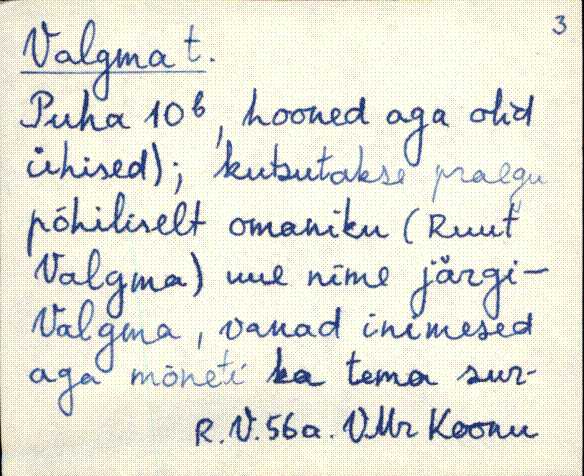 3
Valgma t.
Puha 10b, hooned aga olid
ühised); kutsutakse praegu
põhiliselt omaniku (Ruut
Valgma) uue nime järgi –
Valgma, vanad inimesed
aga mõneti ka tema sur-
R.V.56a. V.Mr Koonu